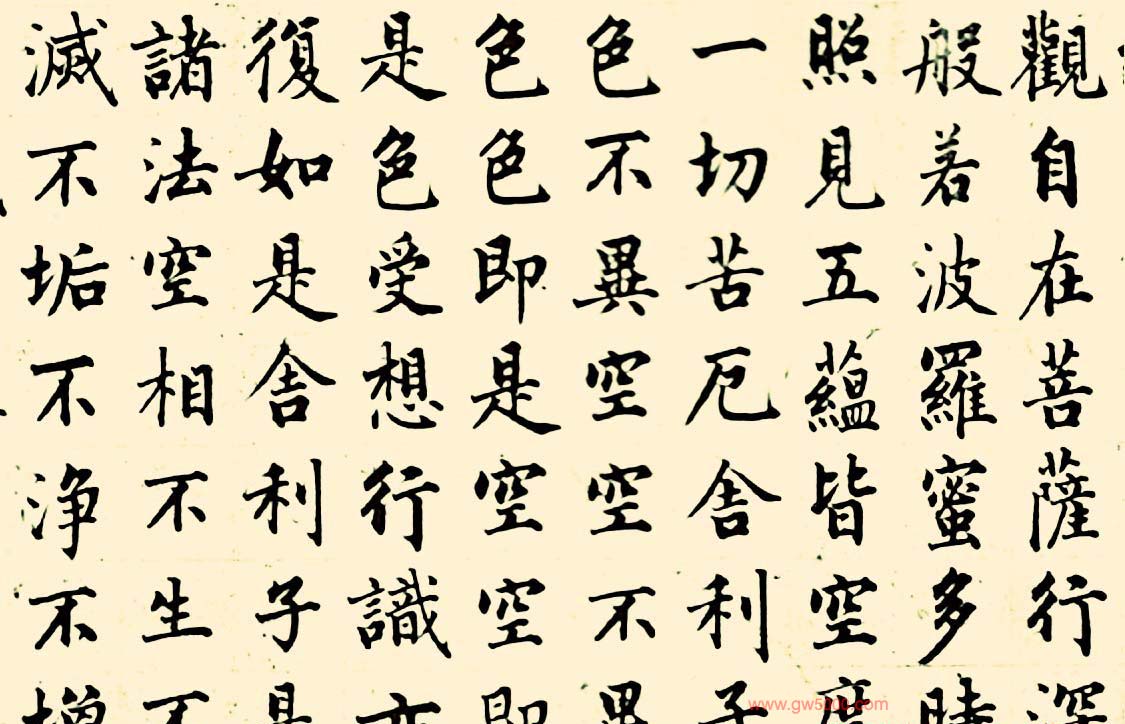 觀自在菩薩行深
般若波羅蜜多時
照見五蘊皆空度
一切苦厄舍利子
色不異空空不異
色色即是空空即
是色受想行識亦
復如是舍利子是
諸法空相不生不
滅不垢不淨不增
www.gw5200.com